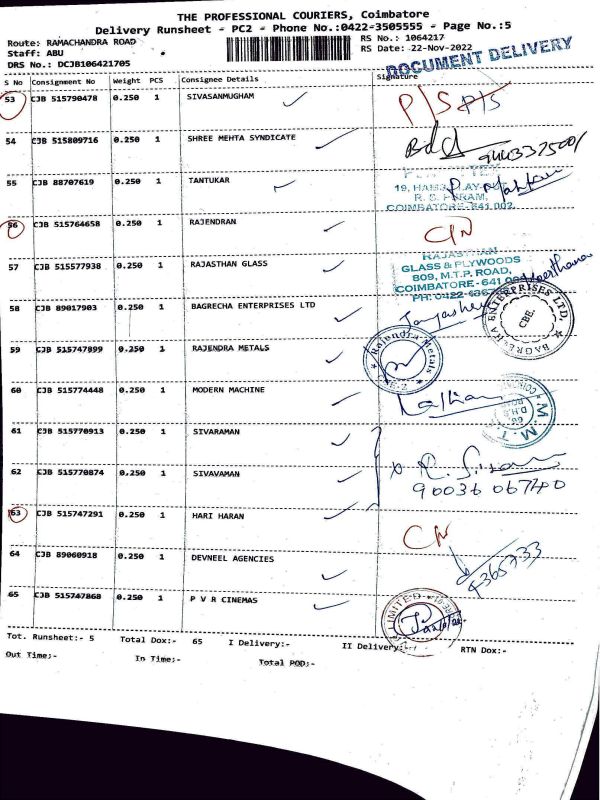 THE PROFESSIONAL COURIERS, Coimbatore
Delivery Runsheet - PC2 - Phone No.:0422-3505555 - Page No.:5
Route: RAMACHANDRA ROAD RS No.: 1064217
Staff: ABU RS Date: 22-Nov-2022
DRS No.: DCJB106421705
DOCUMENT DELIVERY
S No Consignment No Weight PCS Consignee Details Signature
53 CJB 515790478 0.250 1 SIVASANMUGHAM P/S P/S
54 CJB 515809716 0.250 1 SHREE MEHTA SYNDICATE
55 CJB 88707619 0.250 1 TANTUKAR
19,
R. S. PURAM,
COIMBATORE-641 002.
56 CJB 515764658 0.250 1 RAJENDRAN
57 CJB 515577938 0.250 1 RAJASTHAN GLASS
RAJASTHAN
GLASS & PLYWOODS
809, M.T.P. ROAD,
COIMBATORE - 641
PH: 0422
58 CJB 89017903 0.250 1 BAGRECHA ENTERPRISES LTD
BAGRECHA ENTERPRISES LTD, CBE.
59 CJB 515747899 0.250 1 RAJENDRA METALS
Rajendra Metals
60 CJB 515774448 0.250 1 MODERN MACHINE
M. M. T.
61 CJB 515770913 0.250 1 SIVARAMAN
62 CJB 515770874 0.250 1 SIVAVAMAN
90036 06740
63 CJB 515747291 0.250 1 HARI HARAN
64 CJB 89060918 0.250 1 DEVNEEL AGENCIES
65 CJB 515747868 0.250 1 P V R CINEMAS
LIMITED
Tot. Runsheet:- 5 Total Dox:- 65 I Delivery:- II Delivery:- RTN Dox:-
Out Time:- In Time:- Total POD:-